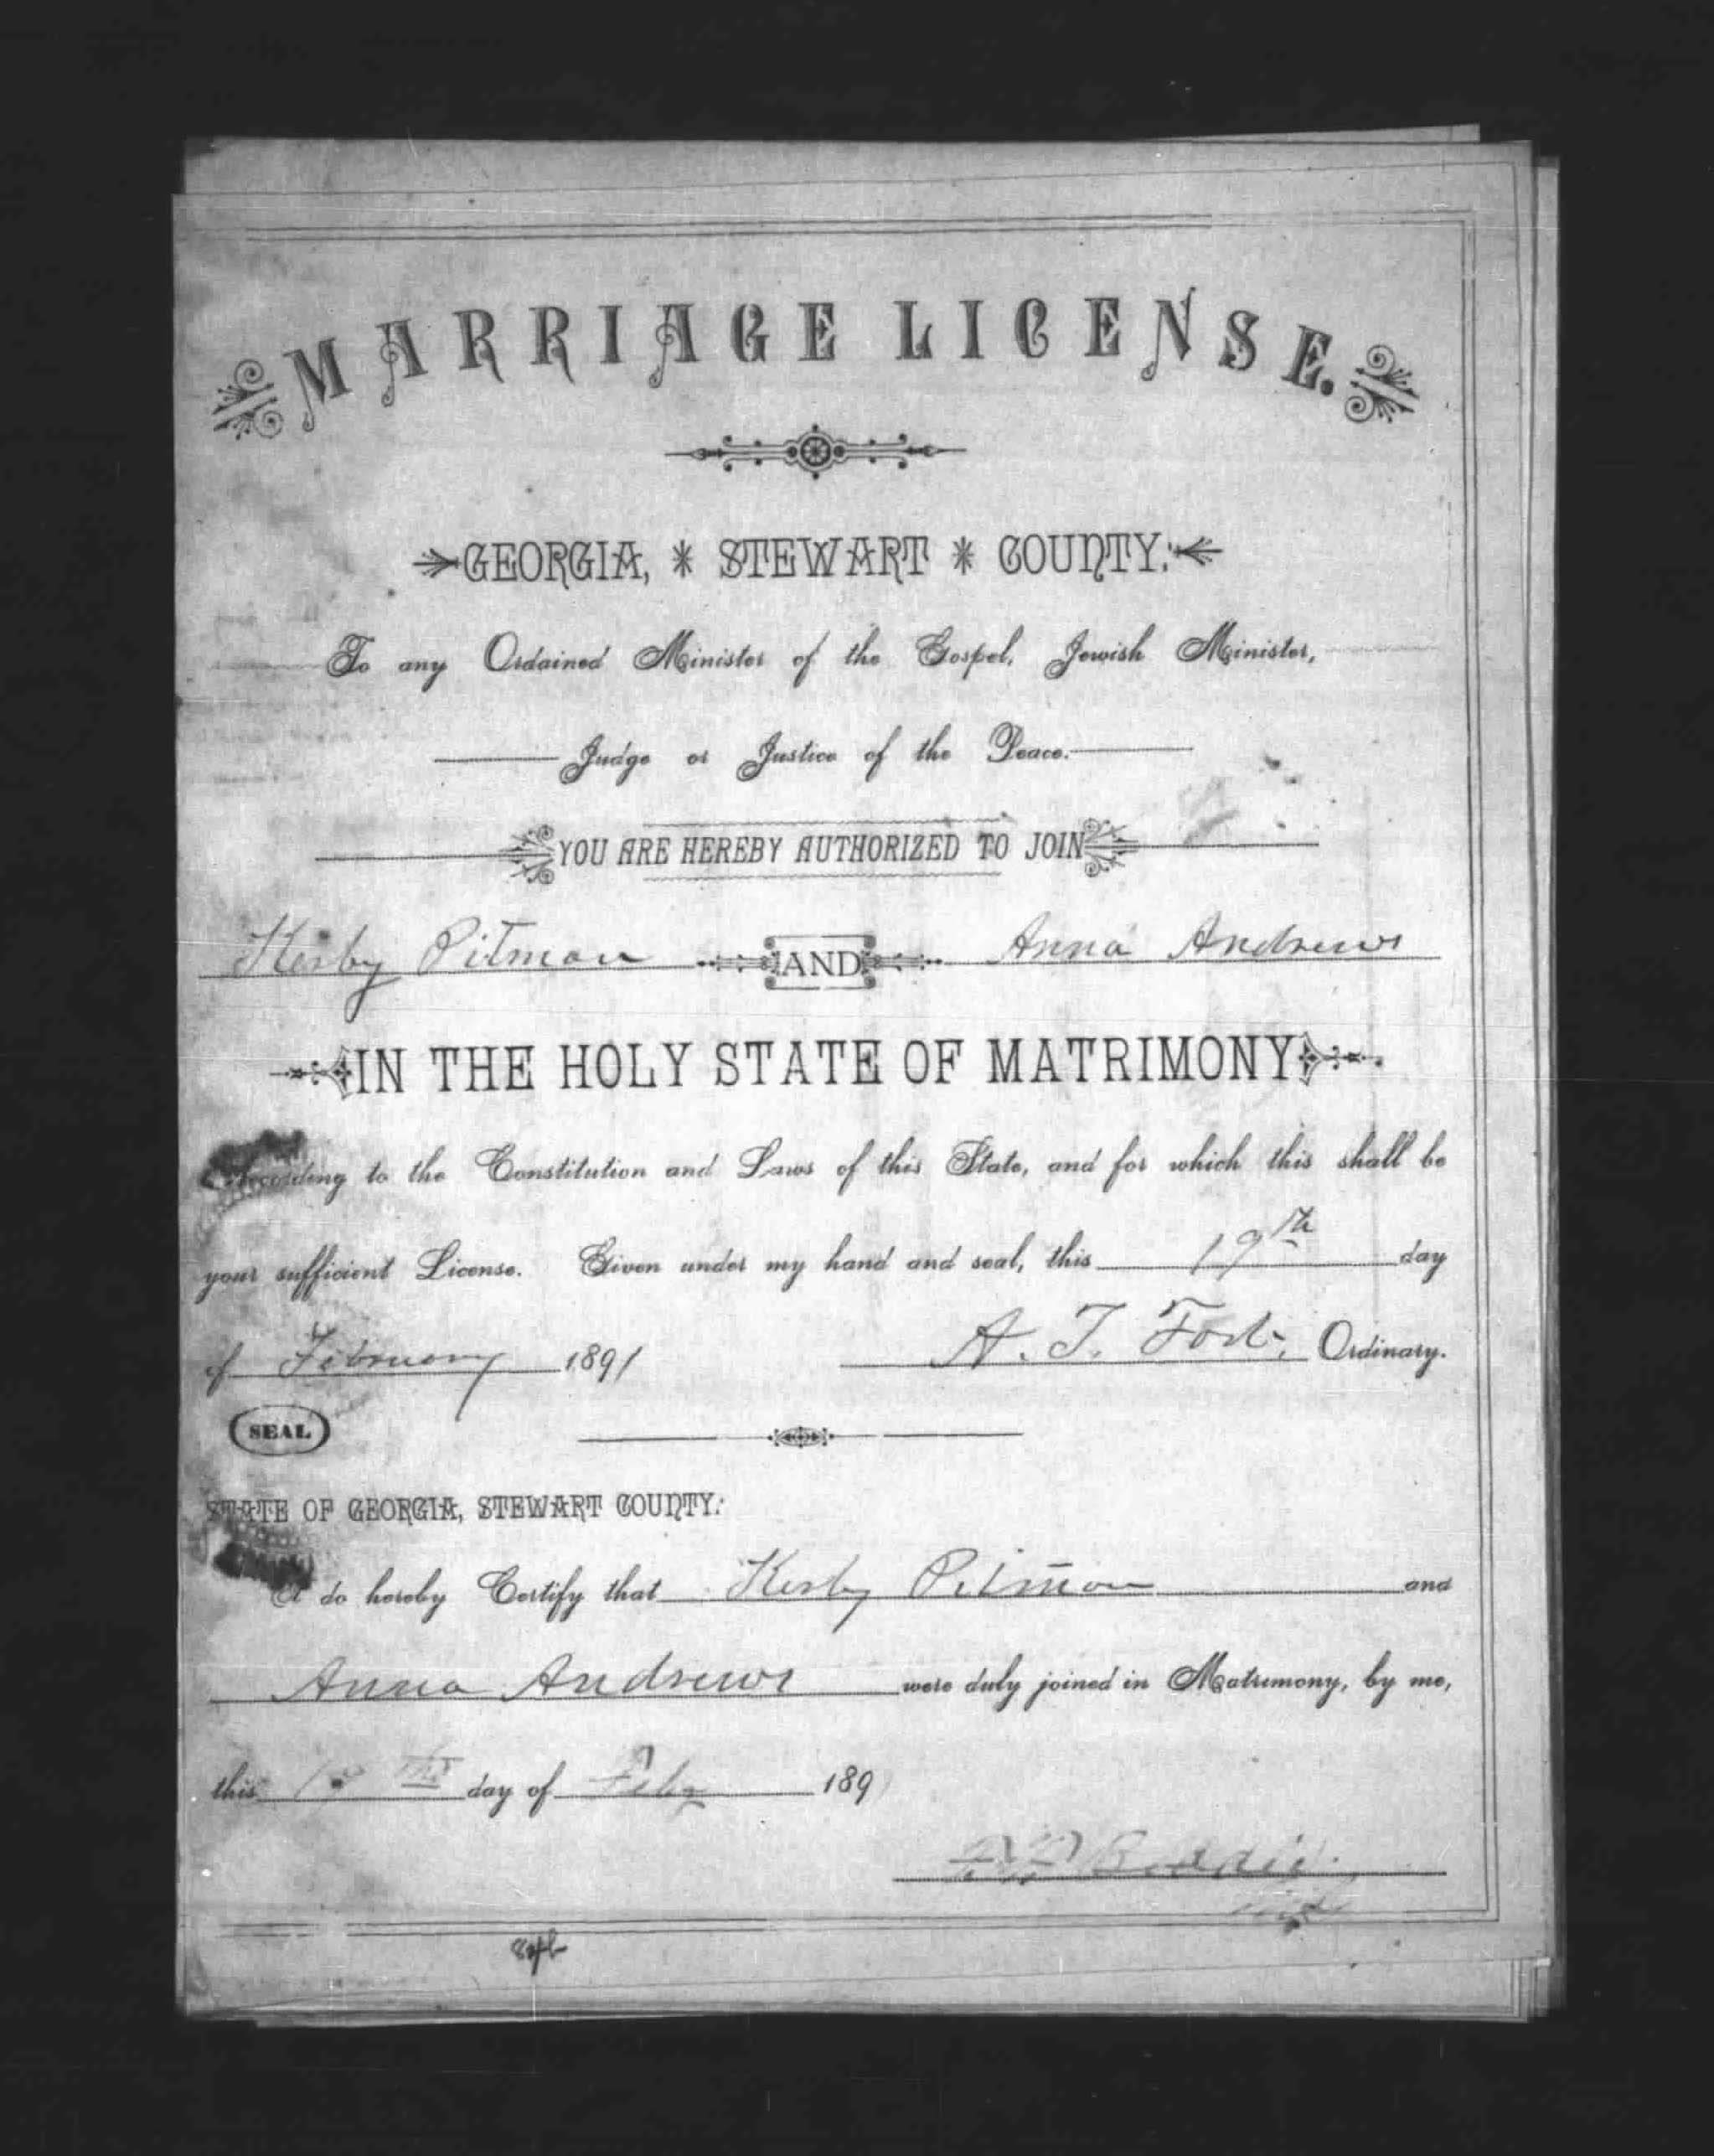 MARRIAGE LICENSE.
GEORGIA, * STEWART * COUNTY:
To any Ordained Minister of the Gospel, Jewish Minister,
Judge or Justice of the Peace.
YOU ARE HEREBY AUTHORIZED TO JOIN
Kerby Pitman AND Anna Andrews
IN THE HOLY STATE OF MATRIMONY
According to the Constitution and Laws of this State, and for which this shall be
your sufficient License. Given under my hand and seal, this 19th day
of February 1891 A. T. Fort, Ordinary.
SEAL
STATE OF GEORGIA, STEWART COUNTY:
I do hereby Certify that Kerby Pitman and
Anna Andrews were duly joined in Matrimony, by me,
this day of Feby 189